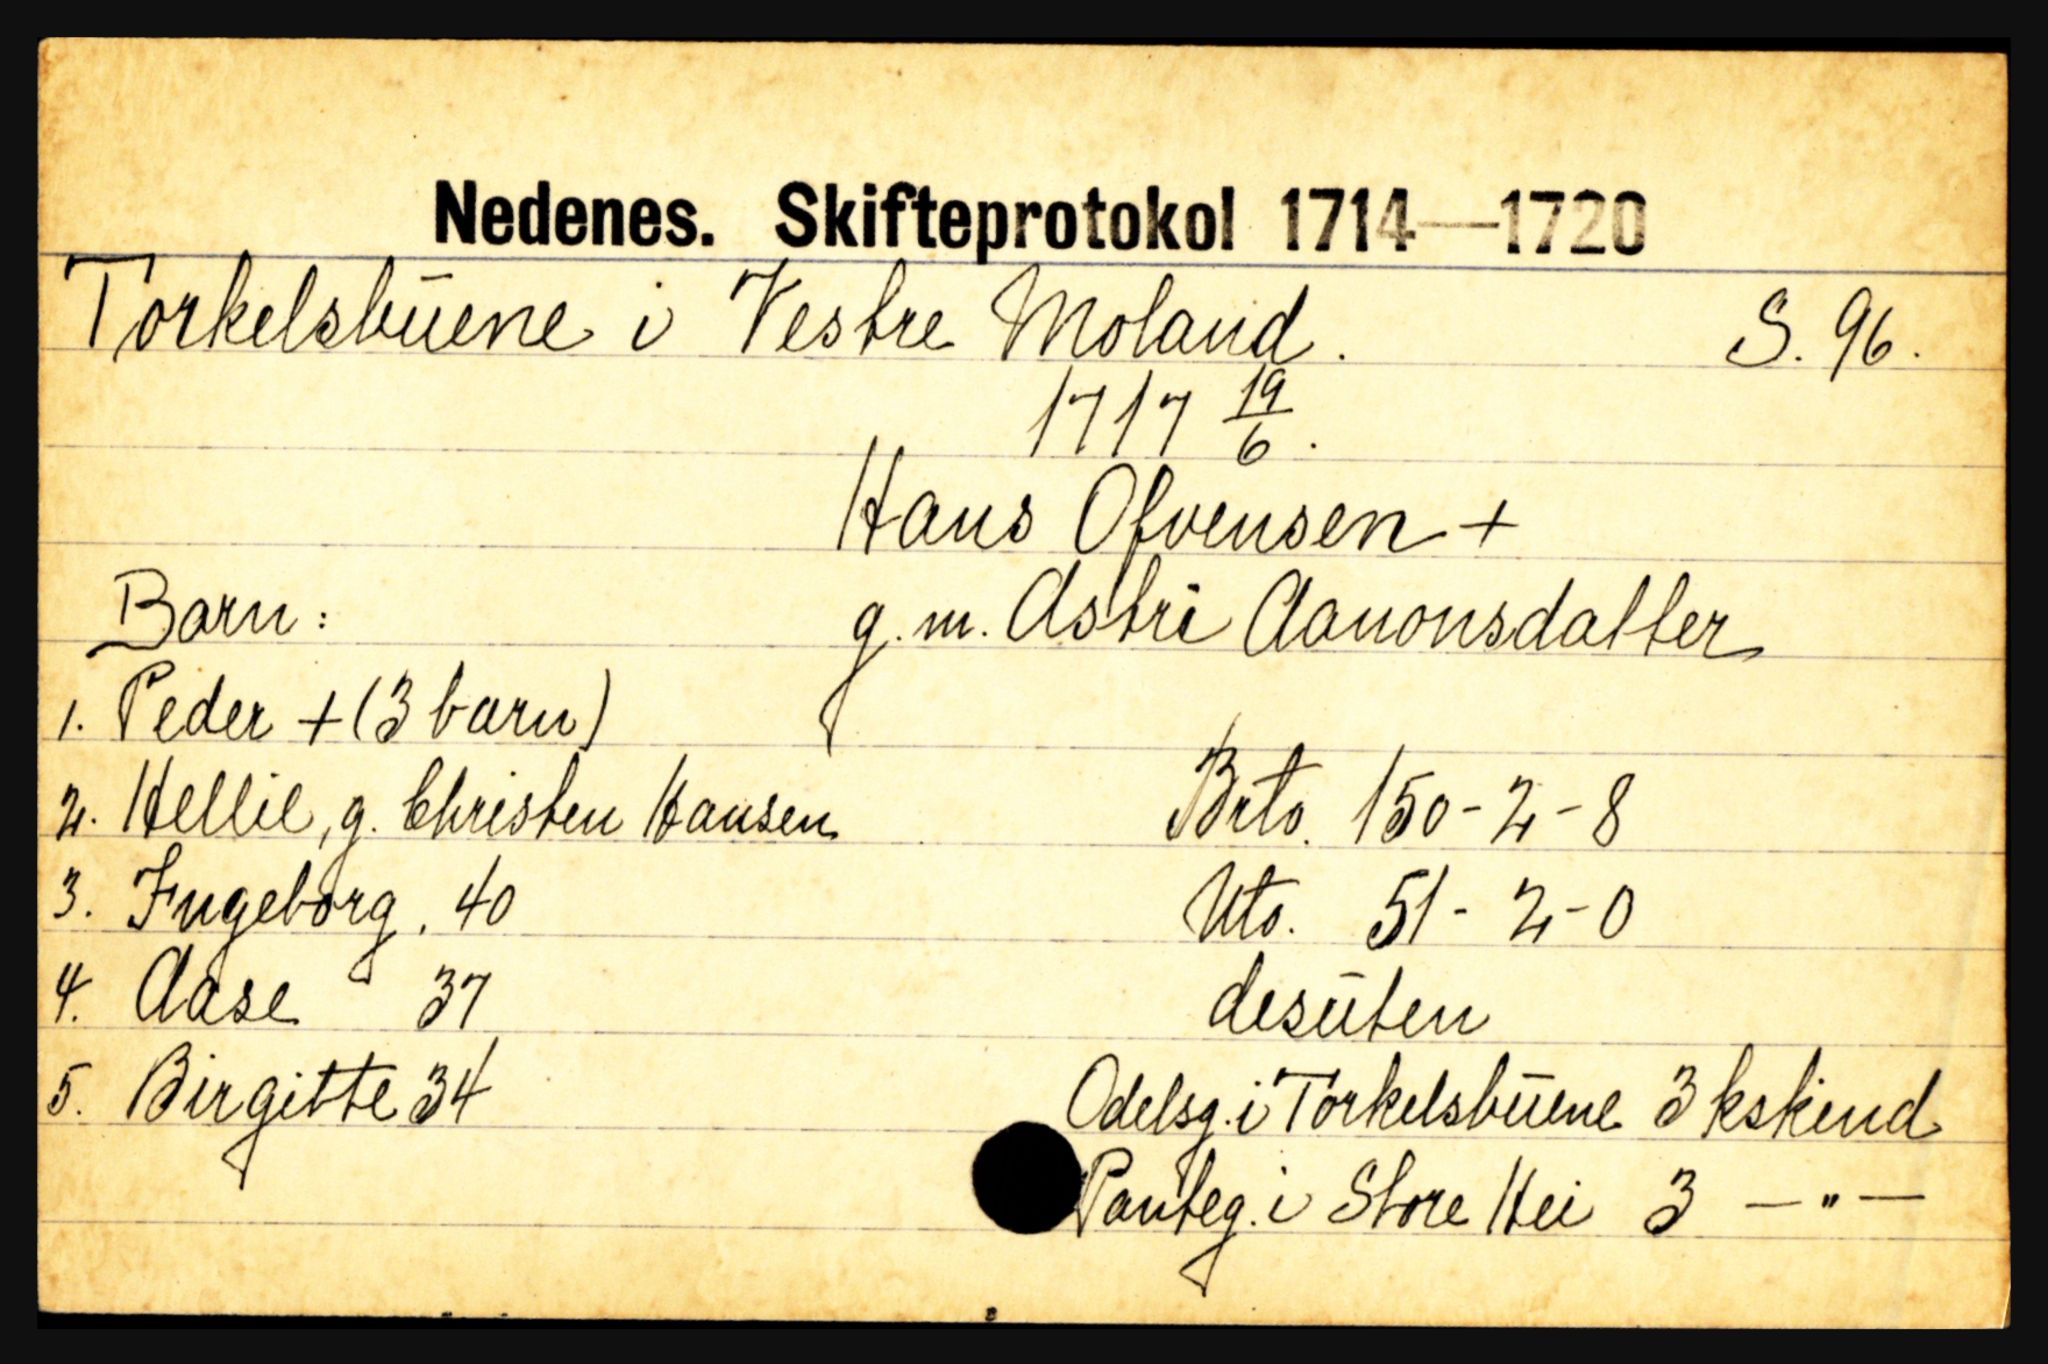 Nedenes. Skifteprotokol 1714—1720
Torkelsbuene i Vestre Moland. S. 96.
1717 19/6.
Hans Ofvensen +
Barn: g. m. Astri Aanonsdatter
1. Peder + (3 barn)
2. Hellie, g. Christen Hansen Brto. 150-2-8
3. Ingeborg. 40 Nto. 51-2-0
4. Aase 37 desuten
5. Birgitte 34 Odelsg. i Torkelsbuene 3 kskind
Panteg. i Store Hei 3 — " —